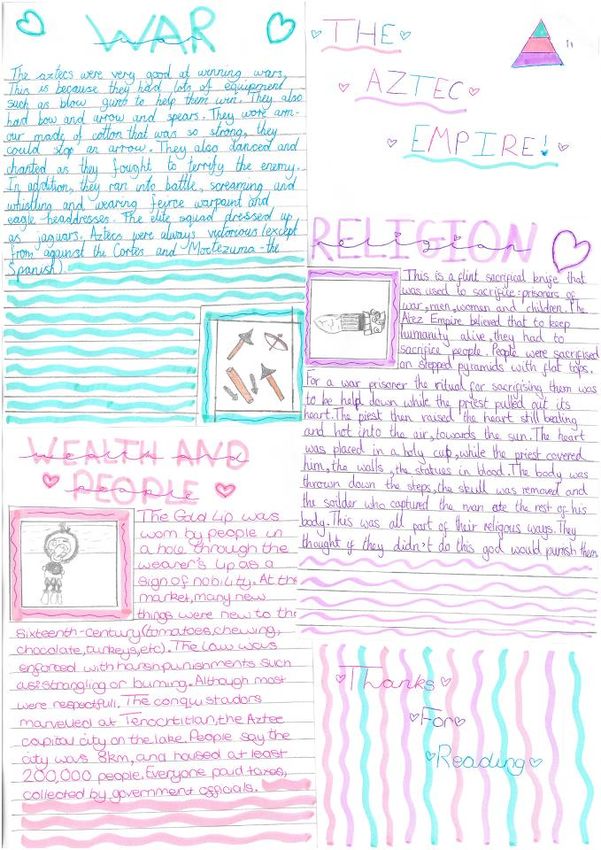 WAR
war
The aztecs were very good at winning wars,
This is because they had lots of equipment
such as blow guns to help them win. They also
had bow and arrow and spears. They wore arm-
our made of cotton that was so strong, they
could stop an arrow. They also danced and
chanted as they fought to terrify the enemy.
In addition, they ran into battle, screaming and
whistling and wearing feirce warpaint and
eagle headdresses. The elite squad dressed up
as jaguars. Aztecs were always victorious (except
from against the Cortes and Moctezuma - the
Spanish)
THE
AZTEC
EMPIRE!
RELIGION
religion
This is a flint sacrificial knife that
was used to sacrifice: prisoners of
war, men, woman and children. The
Atez Empire believed that to keep
humanity alive, they had to
sacrifice people. People were sacrificed
on stepped pyramids with flat tops.
For a war prisoner the ritual for sacrifising them was
to be help down while the priest pulled out its
heart. The piest then raised the heart still beating
and hot into the air, towards the sun. The heart
was placed in a holy cup, while the priest covered
him, the walls, the statues in blood. The body was
thrown down the steps, the skull was removed and
the soilder who captured the man ate the rest of his
body. This was all part of their religious ways. They
thought if they didn't do this god would punish them
WEALTH AND
wealth and
PEOPLE
people
The Gold Lip was
worn by people in
a hole through the
wearer's lip as a
sign of nobility. At the
market, many new
things were new to the
sixteenth-century (tomatoes, chewing,
chocolate, turkeys, etc). The law was
enforced with harsh punishments such
as strangling or burning. Although most
were respectfull. The conquistadors
marvelled at Tenochtitlan, the Aztec
capital city on the lake. People say the
city was 8km, and housed at least
200,000 people. Everyone paid taxes,
collected by government officials.
Thanks
For
Reading